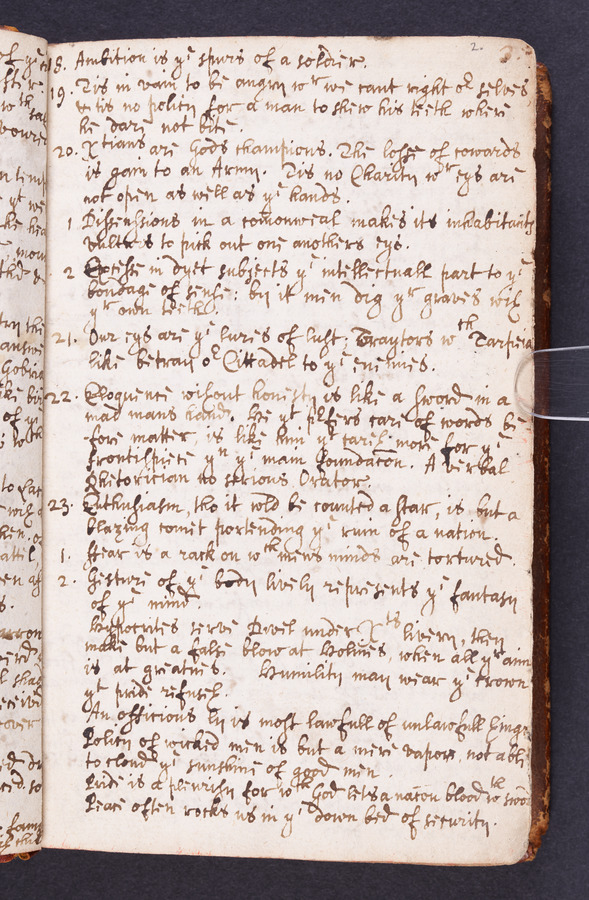 2. 3.
18. Ambition is yᵉ spurs of a soldier.
19. Tis in vain to be angry wʳ we cant right oʳ selves
& tis no policy for a man to shew his teeth where
he darz not bite.
20. Xtians are Gods champions. The losse of cowards
is gain to an Army. Tis no Charity wʳ eys are
not open as well as yᵉ hands.
1 Dissensions in a comonweal makes its inhabitants
vulturs to pick out one anothers eys.
2 Excesse in dyet subjects yᵉ intellectuall part to yᵉ
bondage of sense: by it men dig yʳ graves with
yʳ own teeth.
21. Our eys are yᵉ lures of lust; Traytors wᵗʰ Tarpeia
like betray oʳ Cittadel to yᵉ enemies.
22. Eloquence without honesty is like a sword in a
mad mans hand. He yᵗ pʳfers care of words be
fore matter, is like him yᵗ careth more for yᵉ
frontispiece yⁿ yᵉ main foundation. A verbal
Rhetorician no serious Orator.
23. Enthusiasm, tho it wold be counted a star, is but a
blazing comet portending yᵉ ruin of a nation.
1. Fear is a rack on wᶜʰ mens minds are tortured.
2. Gesture of yᵉ body lively represents yᵉ fantasy
of yᵉ mind.
Hypocrites serve Devel under Xᵗˢ livery, then
make but a false blow at Holines, when all yʳ aim
is at greatnes. Humility may wear yᵉ crown
yᵗ pride refuseth.
An officious ly is most lawfull of unlawfull things
Policy of wicked men is but a mere vapor, not able
to cloud yᵉ sunshine of good men.
Pride is a pleurisy for wᶜʰ God lets a nation blood wᵗʰ sword
Peace often rocks us in yᵉ down bed of security.